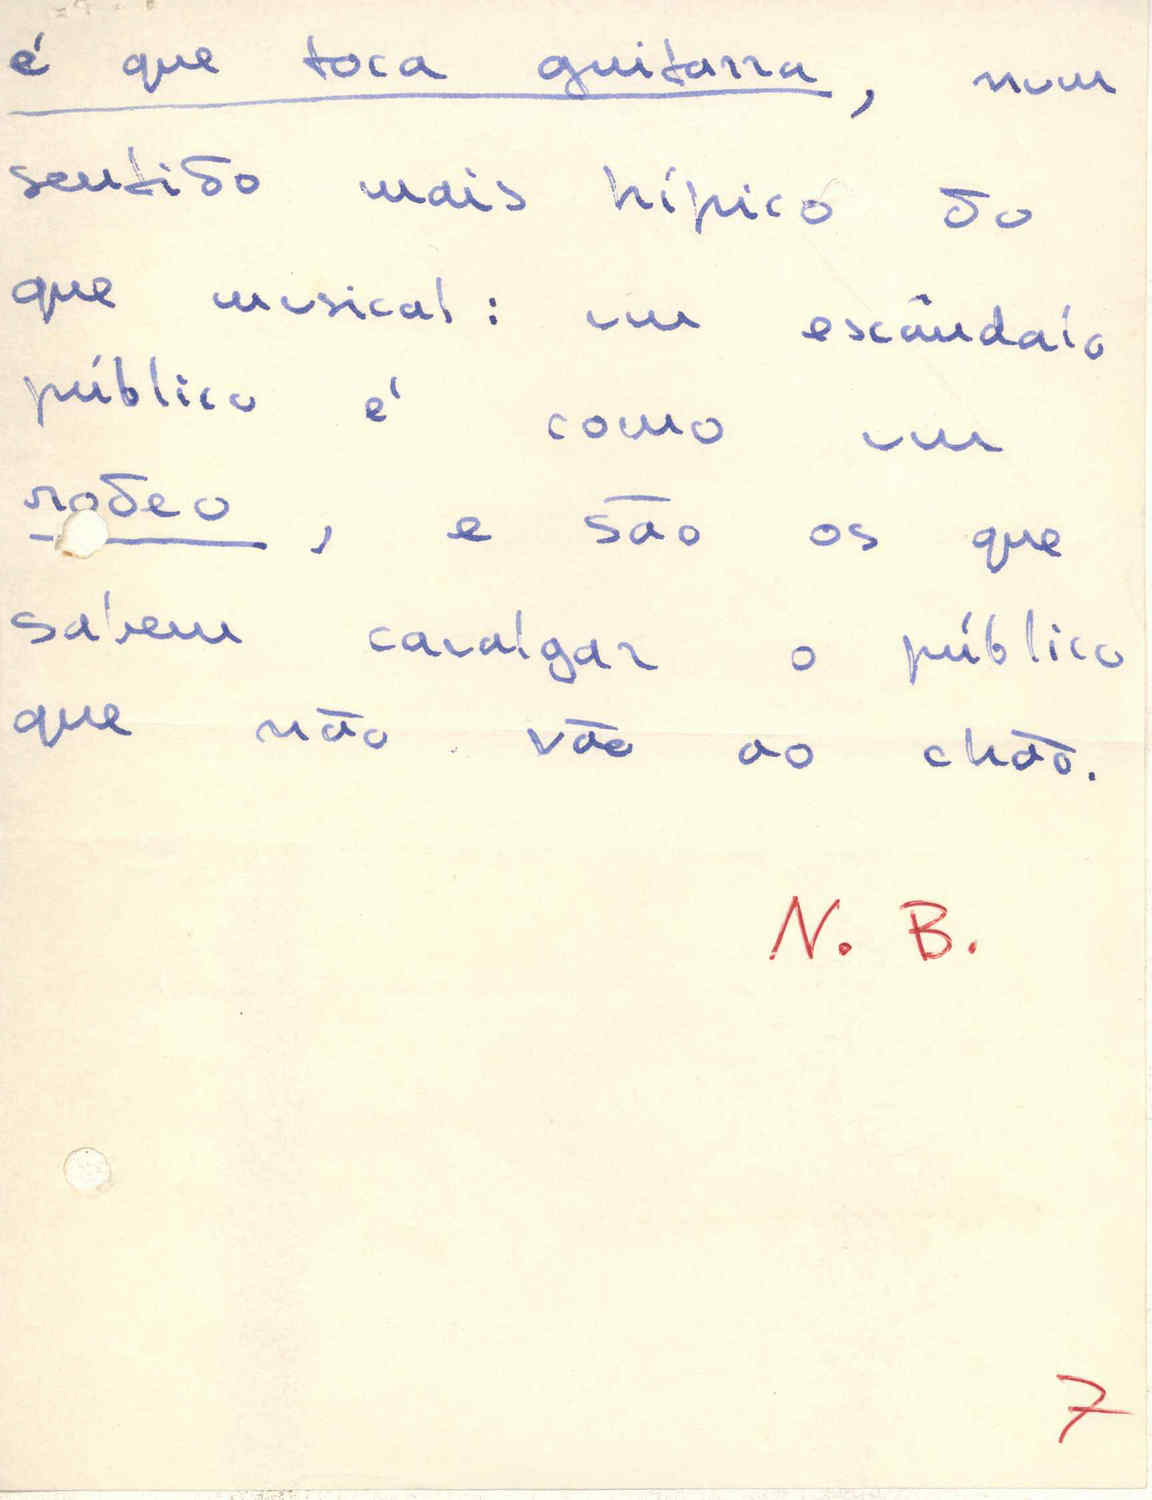 é que toca guitarra, num
sentido mais hípico do
que musical: um escândalo
público é como um
rodeo, e são os que
sabem cavalgar o público
que não vão ao chão.
N. B.
7